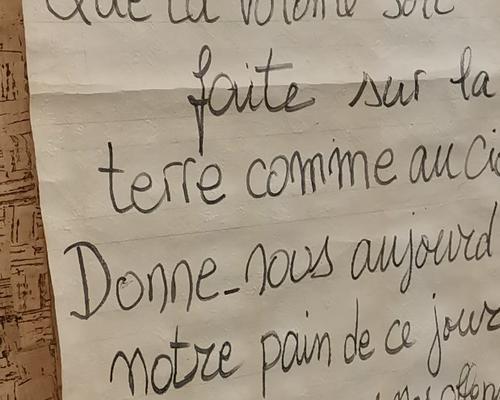 Que la volonté soit
faite sur la
terre comme au Cie
Donne-nous aujourd
notre pain de ce jour
nos offen